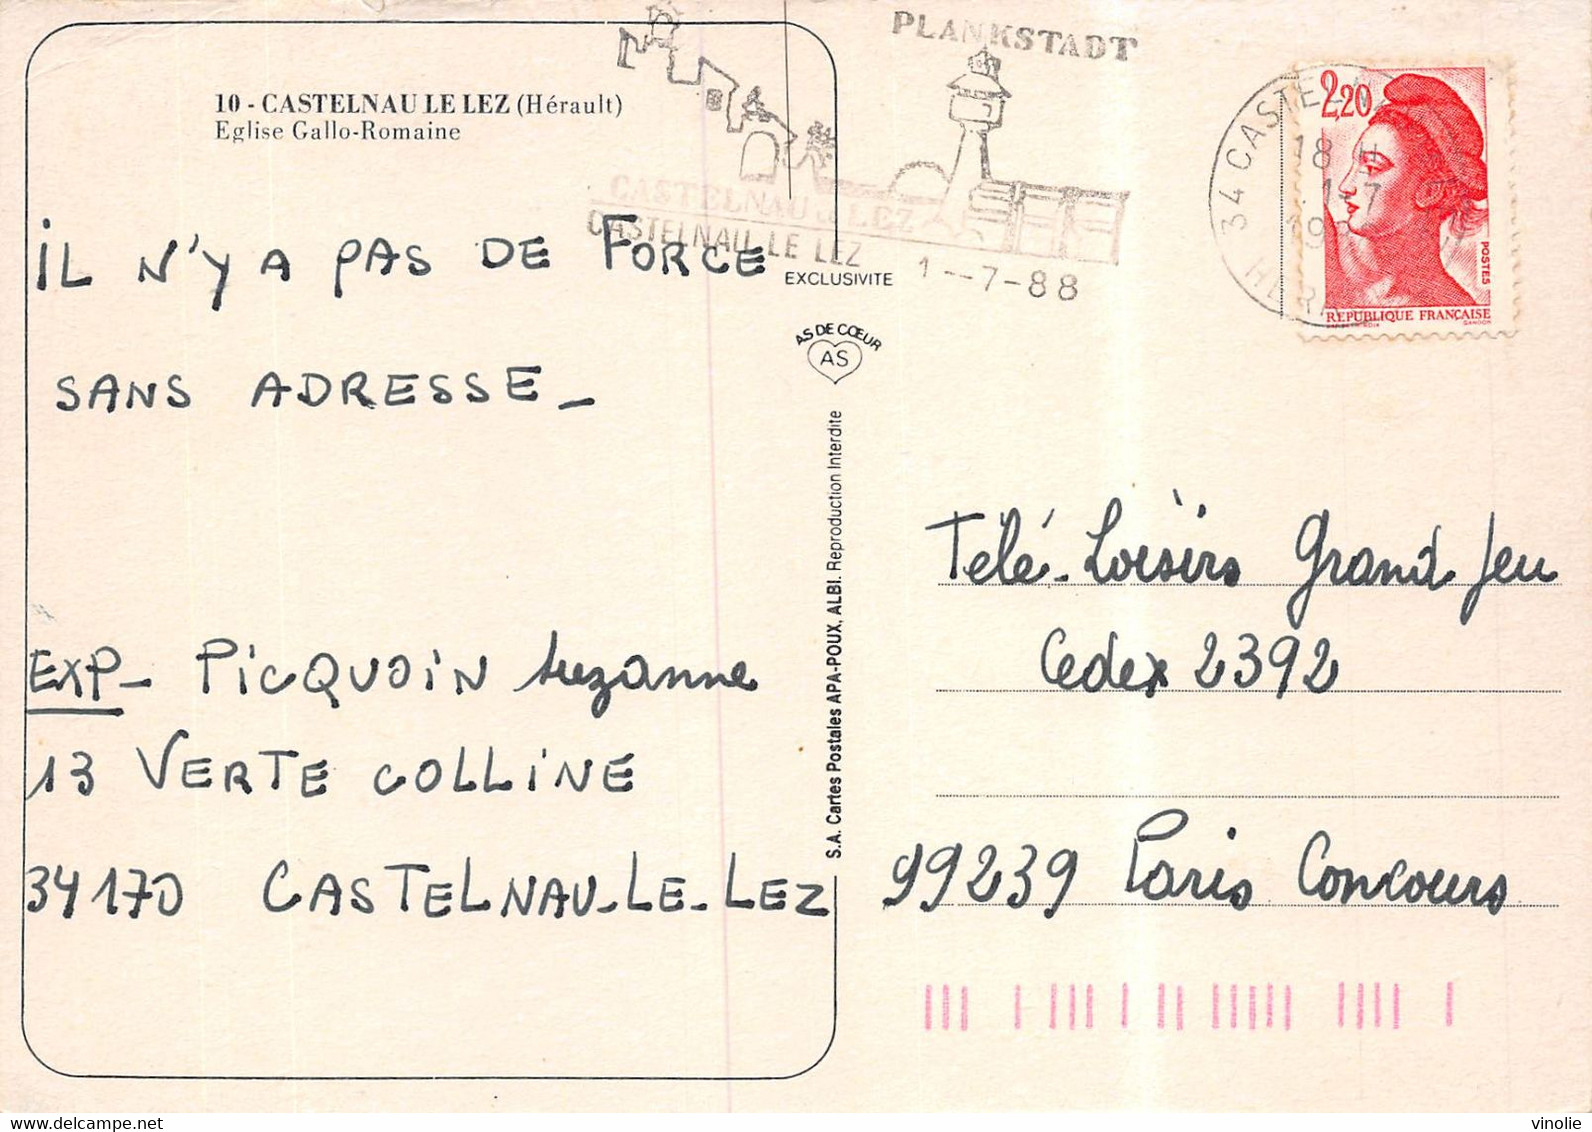 10 - CASTELNAU LE LEZ (Hérault)
Eglise Gallo-Romaine
IL N'Y A PAS DE FORCE
SANS ADRESSE _
EXP_ PICQUOIN Suzanne
13 VERTE COLLINE
34170 CASTELNAU-LE-LEZ
PLANKSTADT
CASTELNAU LE LEZ
CASTELNAU LE LEZ
1--7-88
EXCLUSIVITE
AS DE CŒUR
AS
S.A. Cartes Postales APA-POUX, ALBI. Reproduction Interdite
34 CASTELNA
18 H
1-7
19
HERA
2,20
POSTES
REPUBLIQUE FRANÇAISE
GANDON
Télé-Loisirs Grand Jeu
Cedex 2392
99239 Paris Concours
delcampe.net
vinolie